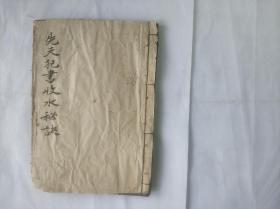 先天犯書收水秘訣